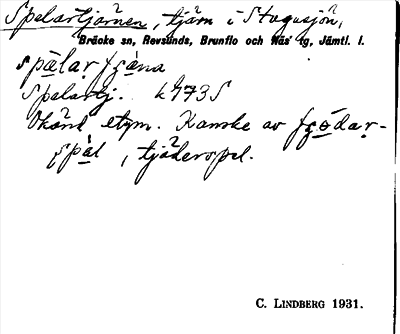 Spelartjärnen, tjärn i Stugusjön,
Bräcke sn, Revsunds, Brunflo och Näs' tg, Jämtl. l.
spälar
Spelartj. k973S
Okänd etym. Kanske av
, tjäderspel.
C. LINDBERG 1931.